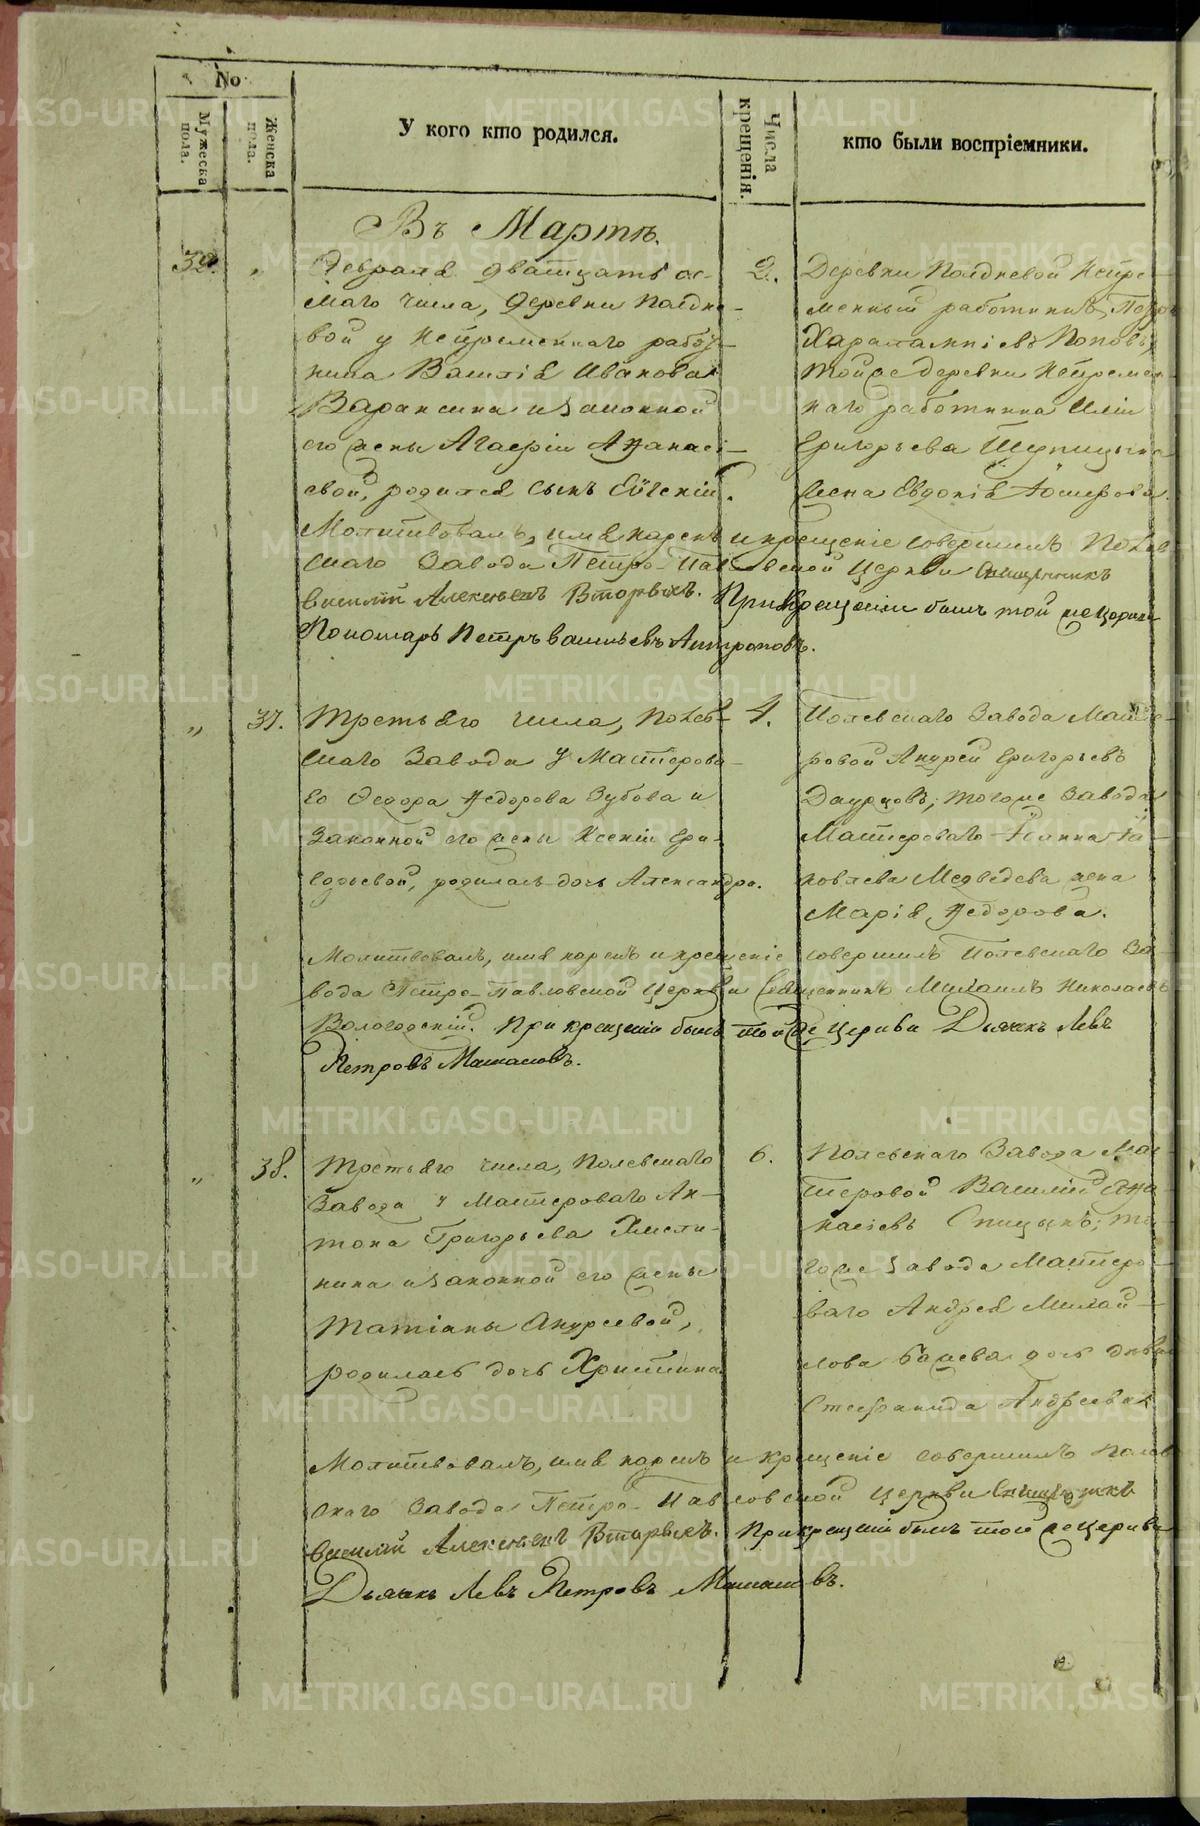 No
Мужеска пола.
Женска пола.
У кого кто родился.
Числа крещенія.
кто были воспріемники.
Въ Мартѣ.
39. „
Февраля дватцать ос-
маго числа, Деревни Полдне-
вой у Непременнаго работ-
ника Василія Иванова
и законной
его жены Агафіи Афанасі-
евой, родился сынъ Евгеній.
2.
Деревни Полдневой Непре-
менный работникъ Петръ
Харалампіевъ Поповъ,
тойже деревни Непремен-
наго работника Иліи
Григорьева Шупицына
жена Евдокія
Молитвовалъ, имя нарекъ и крещеніе совершилъ Полев-
скаго Завода Петро-Павловской Церкви Священникъ
Василій Алексѣевъ Вторыхъ. При крещеніи былъ той же церкви
Пономарь Петръ Васильевъ Антроповъ.
„ 37.
Третьяго числа, Полев-
скаго Завода у Мастерова-
го Федора Федорова Зубова и
Законной его жены Ксеніи Гри-
горьевой, родилась дочь Александра.
4.
Полевскаго Завода Масте-
ровой Андрей Григорьевъ
тогоже Завода
Мастероваго Іоанна Іа-
ковлева Медведева жена
Марія Федорова.
Молитвовалъ, имя нарекъ и крещеніе совершилъ Полевскаго За-
вода Петро-Павловской Церкви Священникъ Михаилъ Николаевъ
Вологодскій. При крещеніи былъ той же Церкви Дьячекъ Левъ
Петровъ
„ 38.
Третьяго числа, Полевскаго
Завода у Мастероваго Ан-
тона Григорьева Хмели-
нина и законной его жены
Татіаны Андреевой,
родилась дочь Христина
6.
Полевскаго Завода Мас-
теровой Василій Афа-
насіевъ Спицынъ; то-
гоже завода Мастеро-
ваго Андрея Михай-
лова дочь девица
Стефанида Андреева
Молитвовалъ, имя нарекъ и крещеніе совершилъ Полев-
скаго Завода Петро-Павловской Церкви Священникъ
Василій Алексѣевъ Вторыхъ. При крещеніи былъ той же Церкви
Дьячекъ Левъ Петровъ
METRIKI.GASO-URAL.RU